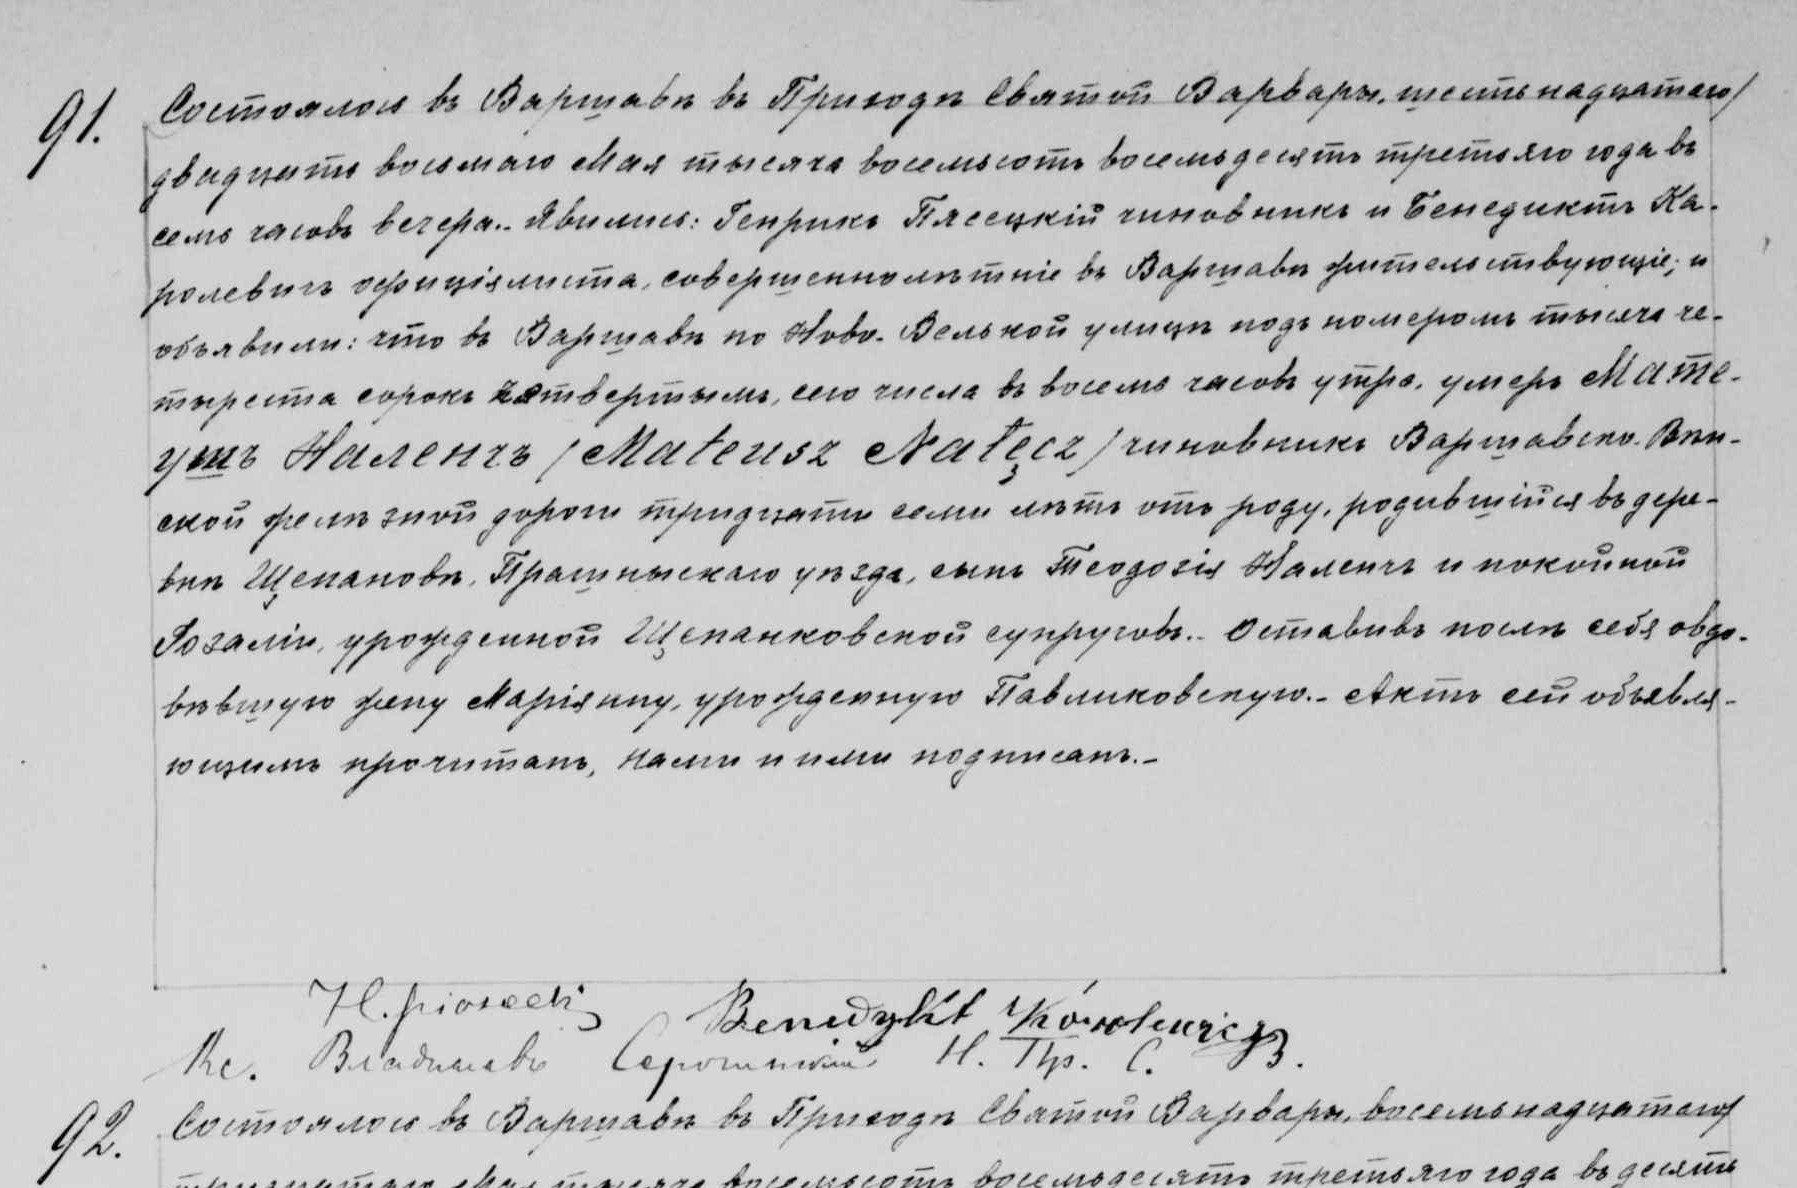 91. Состоялось въ Варшавѣ въ Приходѣ Святой Варвары, шестьнадцатаго/
двадцать восьмаго Мая тысяча восемьсотъ восемьдесятъ третьяго года въ
семь часовъ вечера.- Явились: Генрикъ Плсецкій чиновникъ и Бенедиктъ Ка-
ролевичъ офиціялиста, совершеннолѣтніе въ Варшавѣ жительствующіе; и
объявили: что въ Варшавѣ по Ново-Велькой улицѣ подъ номеромъ тысяча че-
тыреста сорокъ четвертымъ, сего числа въ восемь часовъ утра, умеръ Мате-
ушъ Наленчъ /Mateusz Nałęcz/ чиновникъ Варшавско-Вѣн-
ской желѣзной дороги тридцати семи лѣтъ отъ роду, родившійся въ дере-
внѣ Щепановѣ, Прашнынскаго уѣзда, сынъ Теодозія Наленчъ и покойной
Розаліи, урожденной Щепанковской супруговъ.- Оставивъ послѣ себя овдо-
вѣвшую жену Маріянну, урожденную Павликовскую.- Актъ сей объявля-
ющимъ прочитанъ, нами и ими подписанъ.-
H. Piasecki Benedykt Karolewicz
Кс. Владиславъ Н. Пр. С. В.
92. Состоялось въ Варшавѣ въ Приходѣ Святой Варвары, восемьнадцатаго/
тридцатаго Мая тысяча восемьсотъ восемьдесятъ третьяго года въ десять